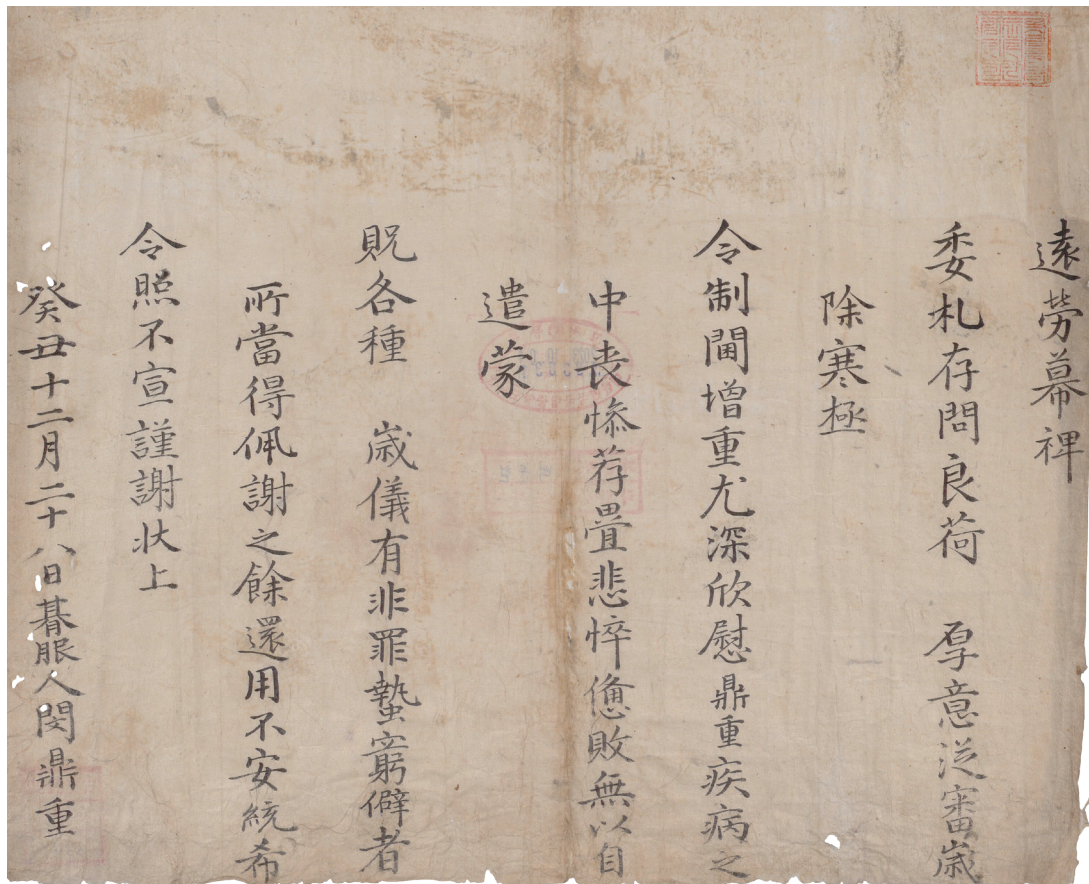 遠勞幕裨
委札存問良荷　厚意從審歲
除寒極
令制閫增重尤深欣慰鼎重疾病之
中喪慘荐疊悲悴憊敗無以自
遣蒙
貺各種　歲儀有非罪蟄窮僻者
所當得佩謝之餘還用不安統希
令照不宣謹謝狀上
癸丑十二月二十八日朞服人閔鼎重